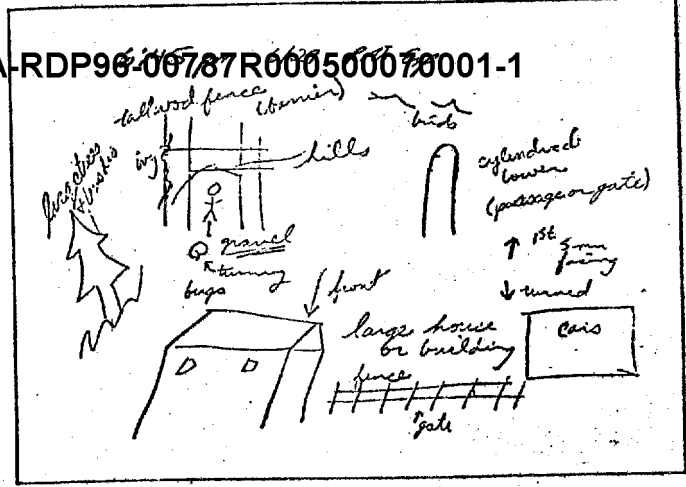 A-RDP96-00787R000500070001-1
tall wood fence
(barrier)
birds
ivy
hills
cylindrical
tower
(passage or gate)
& bushes
gravel
turning
bugs
front
↑ 1st 5 min
facing
↓ turned
large house
or building
cars
fence
↑
gate